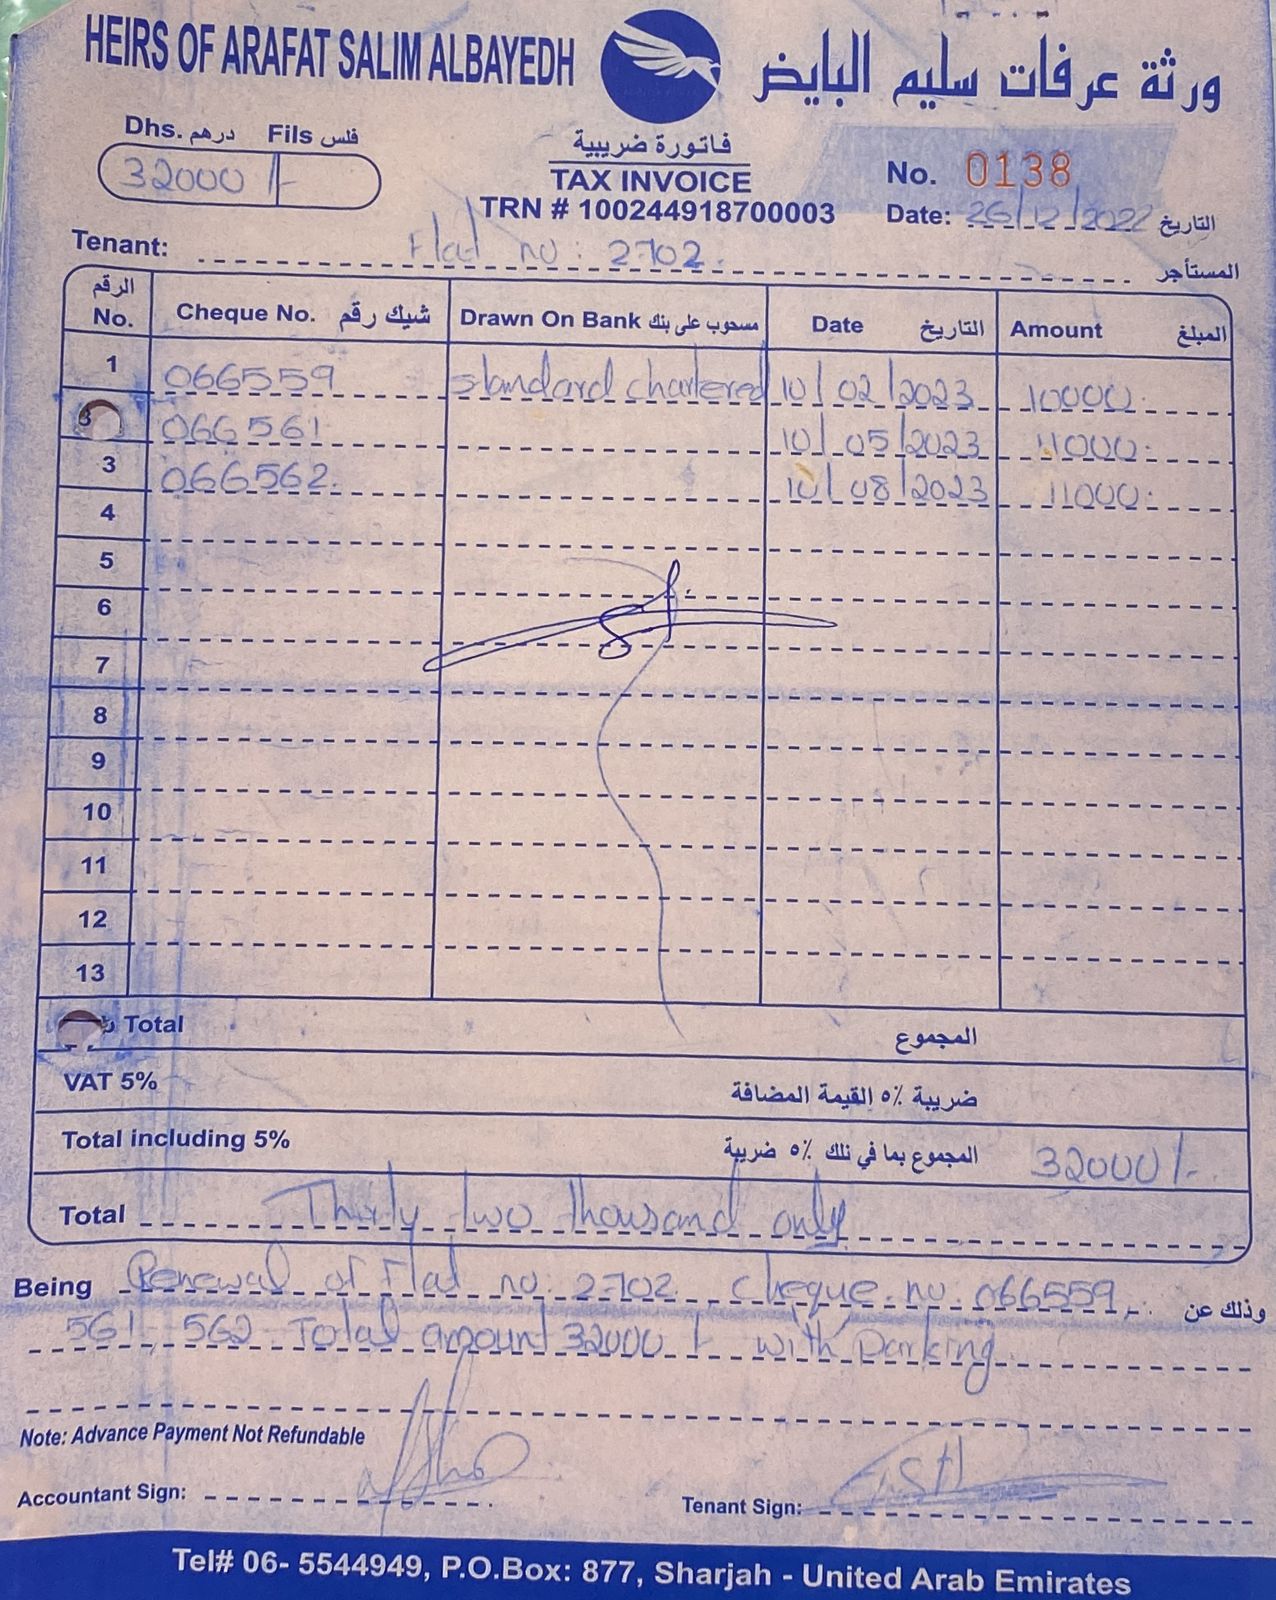 HEIRS OF ARAFAT SALIM ALBAYEDH
ورثة عرفات سليم البايض
Dhs. درهم Fils فلس
32000 /-
فاتورة ضريبية
TAX INVOICE
TRN # 100244918700003
No. 0138
Date: 26/12/2022 التاريخ
Tenant: Flat no: 2702. المستأجر
الرقم No. Cheque No. شيك رقم Drawn On Bank مسحوب على بنك Date التاريخ Amount المبلغ
1 066559 standard chartered 10/02/2023 10000.
066561 10/05/2023 11000.
3 066562. 10/08/2023 11000.
4
5
6
7
8
9
10
11
12
13
Total المجموع
VAT 5% ضريبة ٥٪ القيمة المضافة
Total including 5% المجموع بما في ذلك ٥٪ ضريبة 32000/-
Total Thirty two thousand only
Being Renewal of Flat no: 2702 cheque no. 066559 وذلك عن
561 562 Total amount 32000/- with parking
Note: Advance Payment Not Refundable
Accountant Sign:
Tenant Sign:
Tel# 06- 5544949, P.O.Box: 877, Sharjah - United Arab Emirates